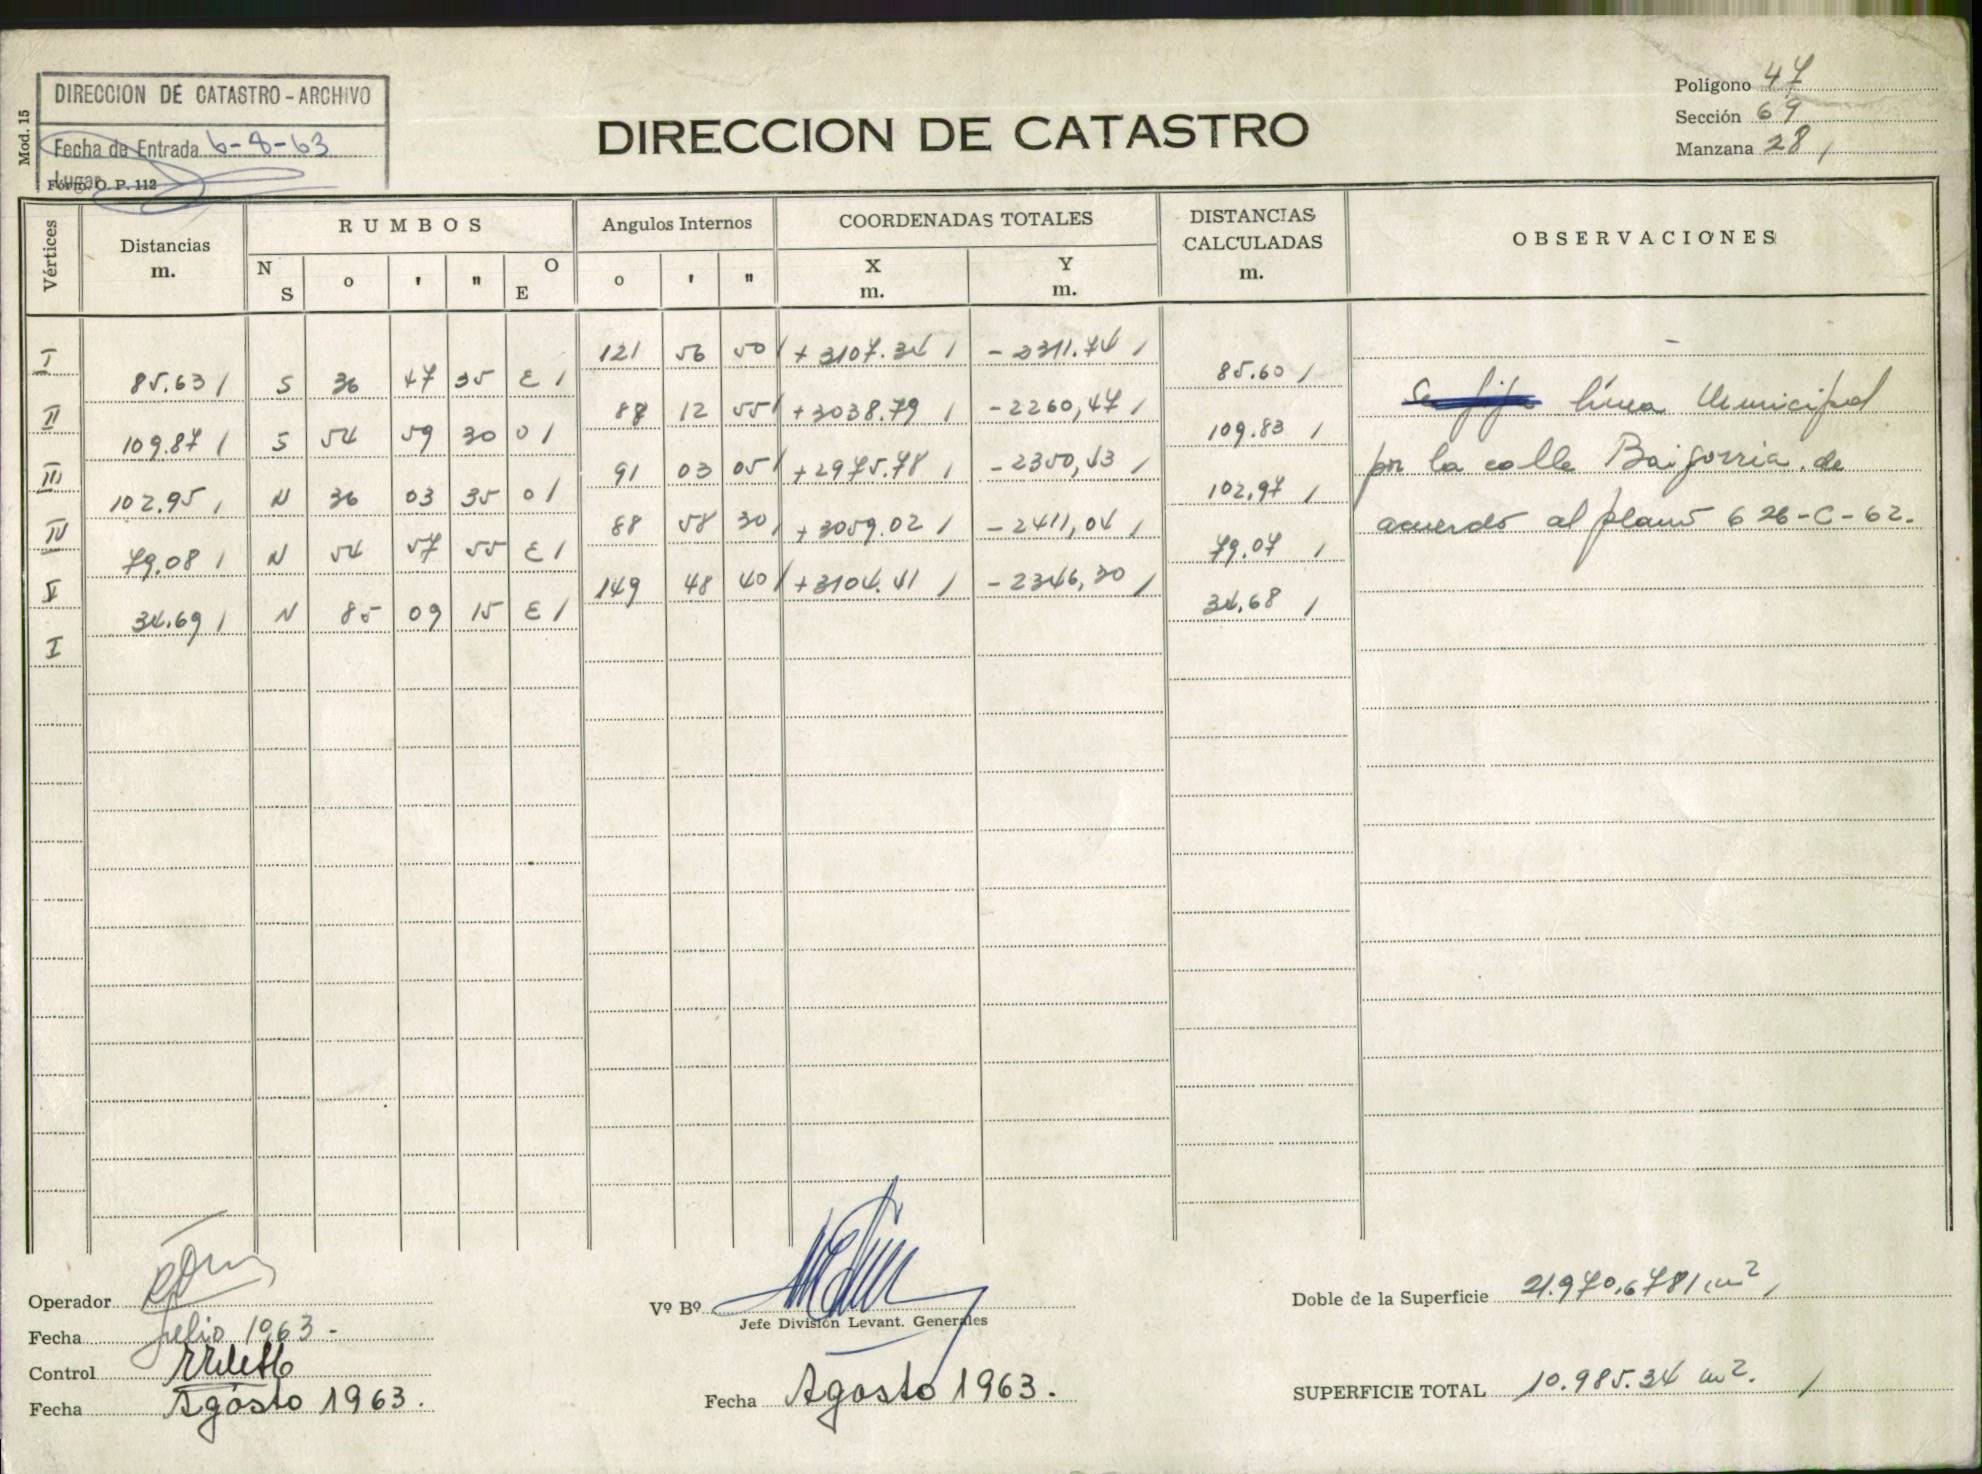 Mod. 15
DIRECCION DE CATASTRO - ARCHIVO
Fecha de Entrada 6-8-63
Lugar
Form. O. P. 112
DIRECCION DE CATASTRO
Polígono 47
Sección 69
Manzana 28
Vértices
Distancias
m.
RUMBOS
N S o ' " O E
Angulos Internos
o ' "
COORDENADAS TOTALES
X
m.
Y
m.
DISTANCIAS
CALCULADAS
m.
OBSERVACIONES
I 121 56 50 + 3107.34 - 2311.74
85.63 S 36 47 35 E 85.60
II 88 12 55 + 3038.79 - 2260,47
109.87 S 54 59 30 O 109.83
III 91 03 05 + 2975.78 - 2350,43
102.95 N 36 03 35 O 102,97
IV 88 58 30 + 3059.02 - 2411,04
79.08 N 54 57 55 E 79.07
V 149 48 40 + 3104.41 - 2346,30
34.69 N 85 09 15 E 34,68
I
línea Municipal
por la calle Baigorria de
acuerdo al plano 626-C-62.
Operador
Fecha Julio 1963 -
Control
Fecha Agosto 1963.
Vº Bº
Jefe División Levant. Generales
Fecha Agosto 1963.
Doble de la Superficie 21.970,6781 m²
SUPERFICIE TOTAL 10.985.34 m².